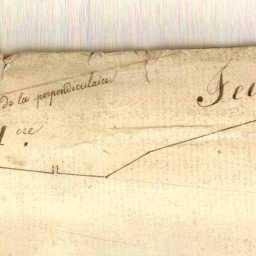 de la perpendiculaire
Feu
1.ere